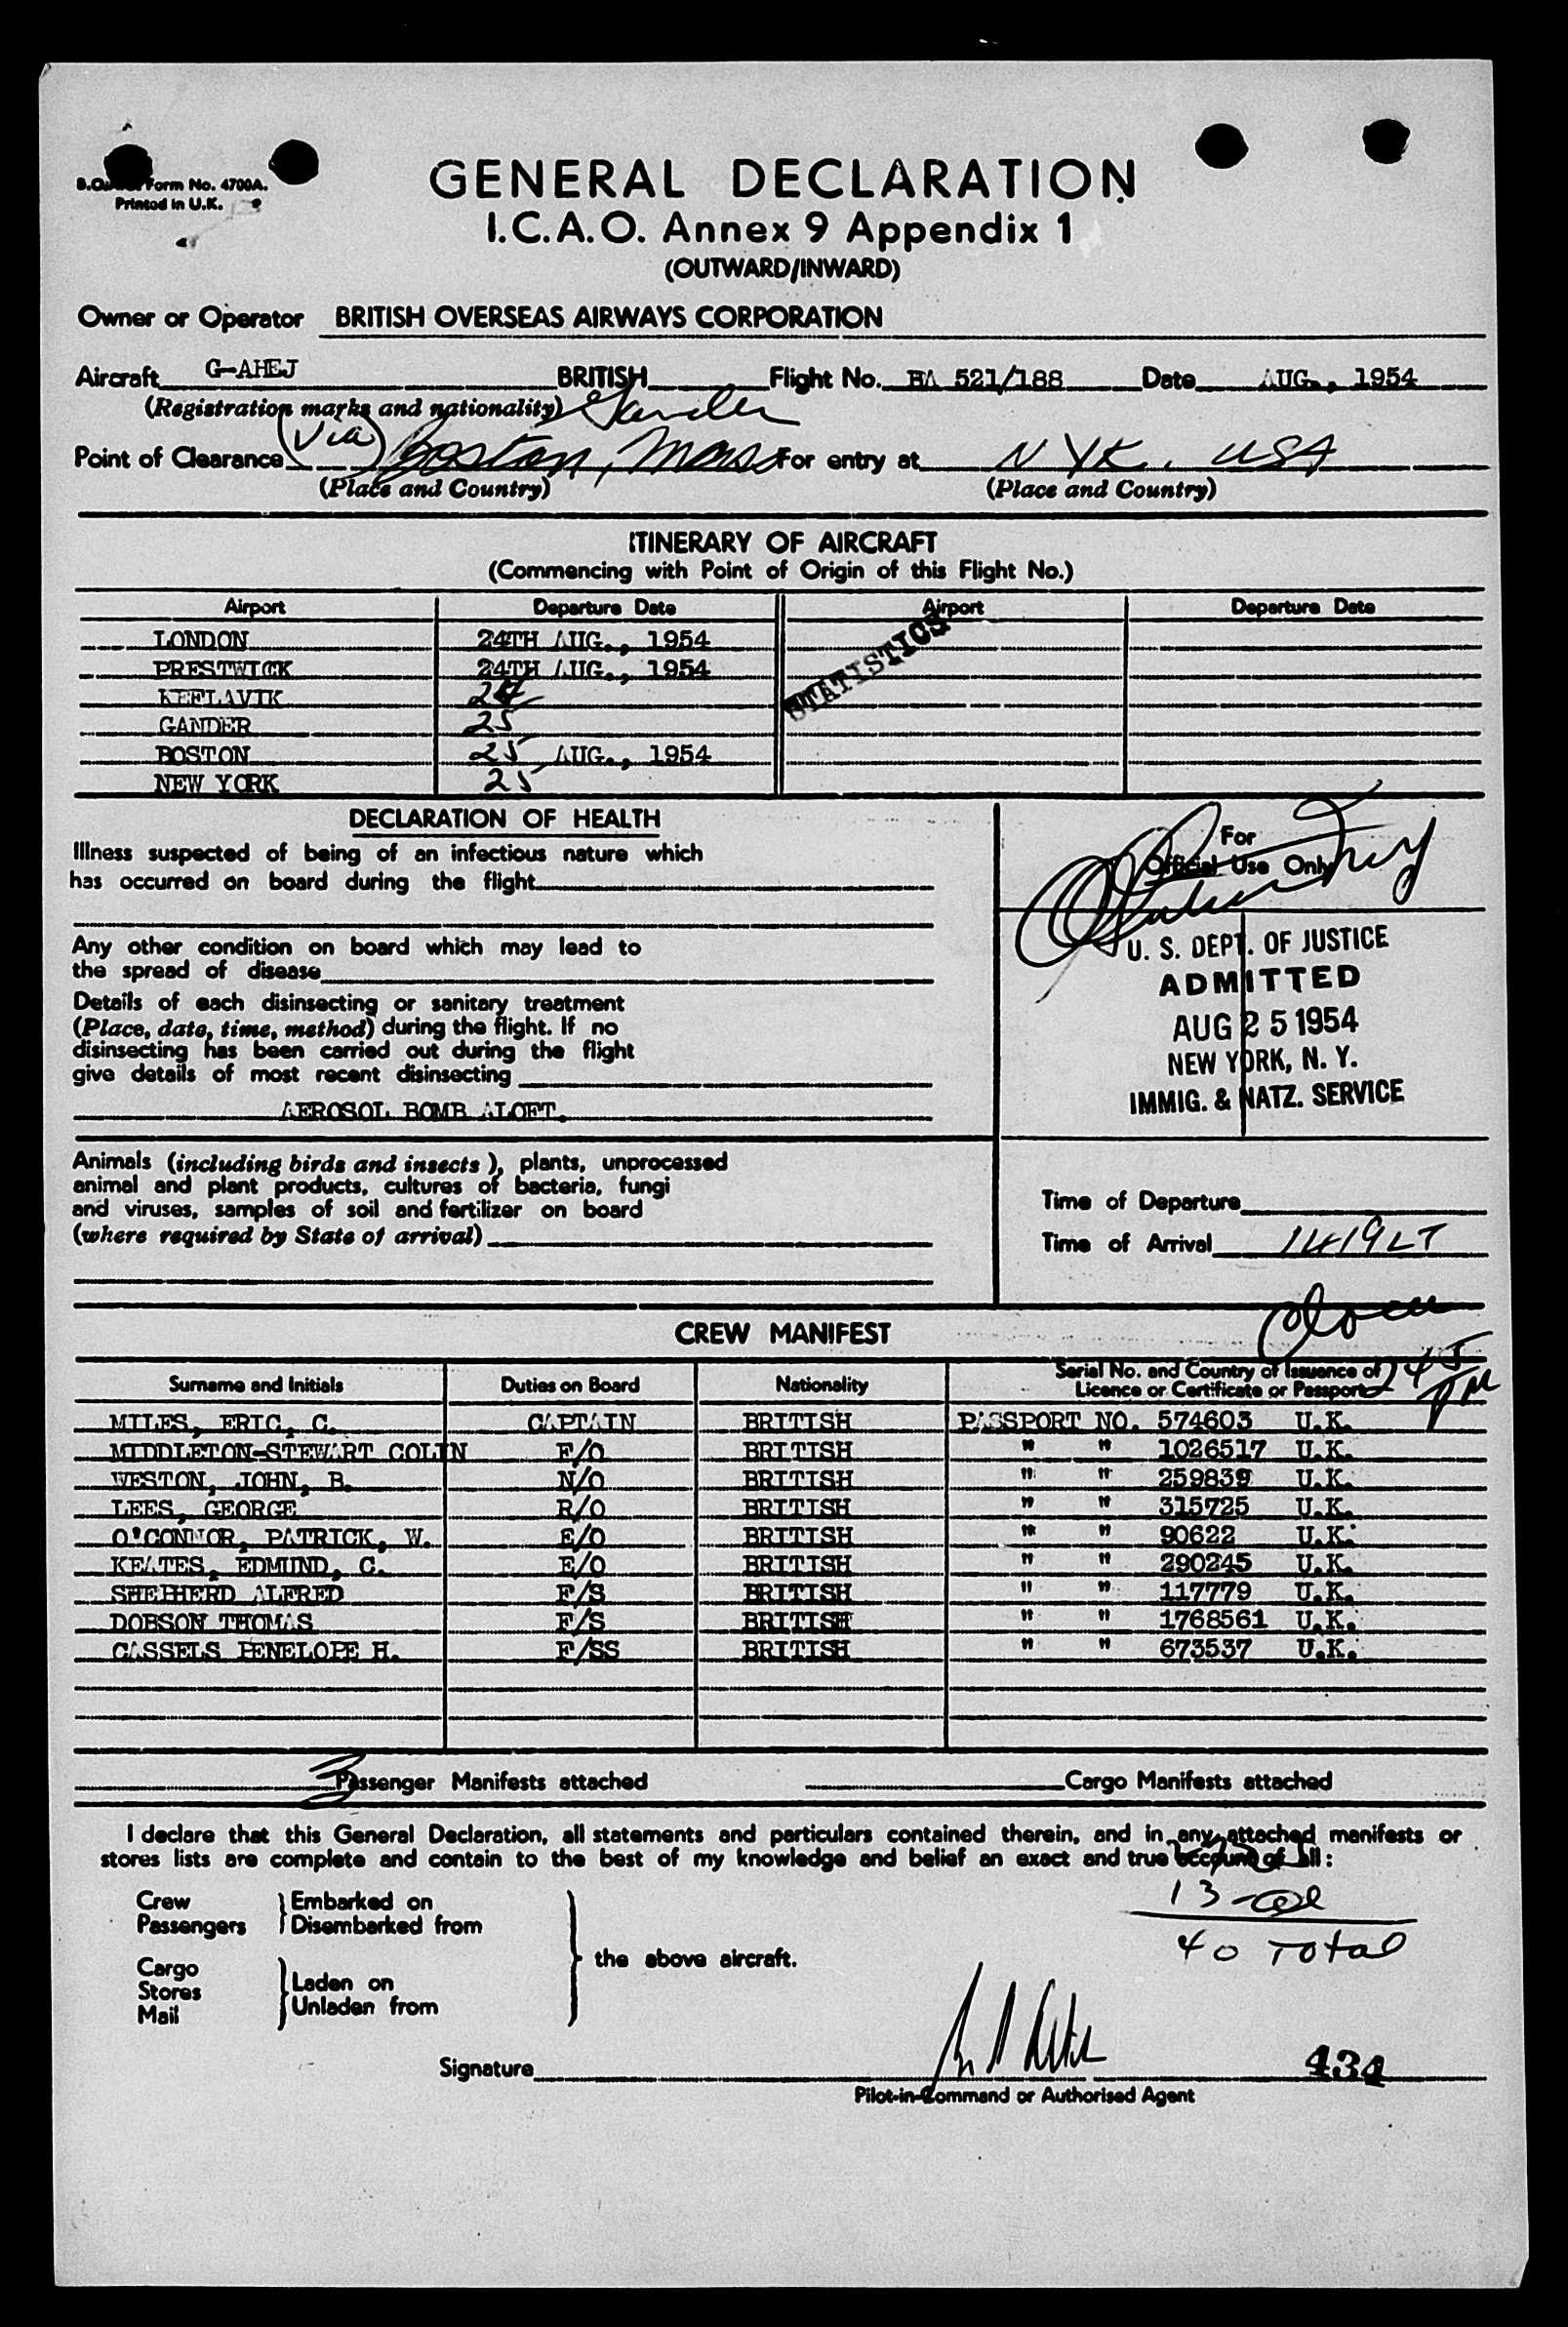 B.O.A.C. Form No. 4700A.
Printed in U.K.
GENERAL DECLARATION
I.C.A.O. Annex 9 Appendix 1
(OUTWARD/INWARD)
Owner or Operator BRITISH OVERSEAS AIRWAYS CORPORATION
Aircraft G-AHEJ BRITISH Flight No. BA 521/188 Date AUG., 1954
(Registration marks and nationality) Gander
Point of Clearance (via) Boston, Mass For entry at NYK. USA
(Place and Country) (Place and Country)
ITINERARY OF AIRCRAFT
(Commencing with Point of Origin of this Flight No.)
Airport Departure Date Airport Departure Date
LONDON 24TH AUG., 1954
PRESTWICK 24TH AUG., 1954
STATISTICS
KEFLAVIK 24
GANDER 25
BOSTON 25 AUG., 1954
NEW YORK 25
DECLARATION OF HEALTH
Illness suspected of being of an infectious nature which
has occurred on board during the flight
Any other condition on board which may lead to
the spread of disease
Details of each disinsecting or sanitary treatment
(Place, date, time, method) during the flight. If no
disinsecting has been carried out during the flight
give details of most recent disinsecting
AEROSOL BOMB ALOFT.
Animals (including birds and insects), plants, unprocessed
animal and plant products, cultures of bacteria, fungi
and viruses, samples of soil and fertilizer on board
(where required by State of arrival)
For
Official Use Only
U. S. DEPT. OF JUSTICE
ADMITTED
AUG 25 1954
NEW YORK, N. Y.
IMMIG. & NATZ. SERVICE
Time of Departure
Time of Arrival 1419 LT
CREW MANIFEST
245 PM
Surname and Initials Duties on Board Nationality Serial No. and Country of Issuance of
Licence or Certificate or Passport
MILES, ERIC, C. CAPTAIN BRITISH PASSPORT NO. 574603 U.K.
MIDDLETON-STEWART COLIN F/O BRITISH " " 1026517 U.K.
WESTON, JOHN, B. N/O BRITISH " " 259839 U.K.
LEES, GEORGE R/O BRITISH " " 315725 U.K.
O'CONNOR, PATRICK, W. E/O BRITISH " " 90622 U.K.
KEATES, EDMUND, C. E/O BRITISH " " 290245 U.K.
SHEPHERD ALFRED F/S BRITISH " " 117779 U.K.
DOBSON THOMAS F/S BRITISH " " 1768561 U.K.
CASSELS PENELOPE H. F/SS BRITISH " " 673537 U.K.
3 Passenger Manifests attached Cargo Manifests attached
I declare that this General Declaration, all statements and particulars contained therein, and in any attached manifests or
stores lists are complete and contain to the best of my knowledge and belief an exact and true account of all:
Crew
Passengers
Embarked on
Disembarked from
Cargo
Stores
Mail
Laden on
Unladen from
the above aircraft.
13
40 Total
Signature 434
Pilot-in-Command or Authorised Agent